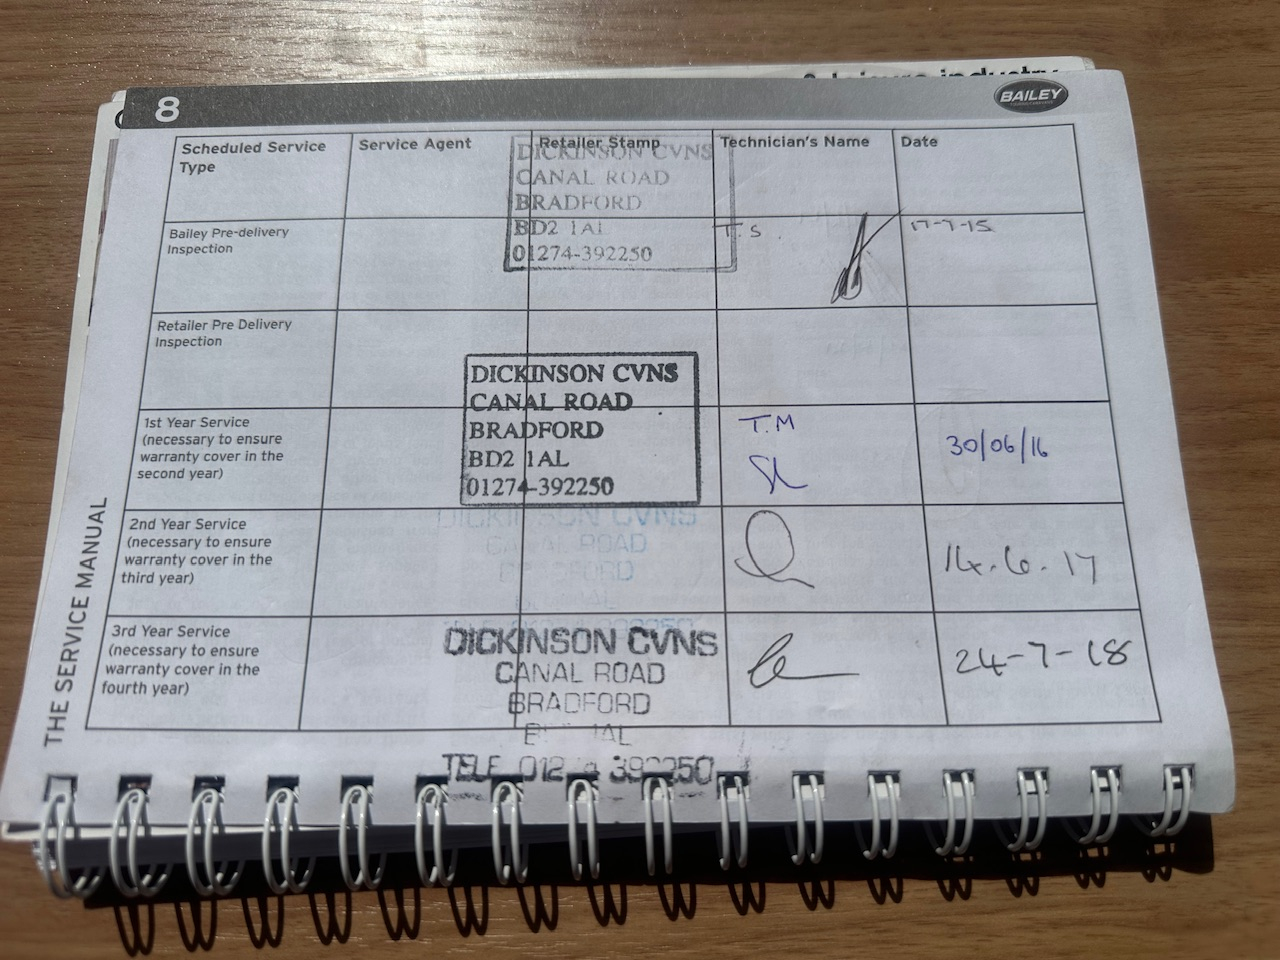 & Leisure industry
8
BAILEY
Scheduled Service Type
Service Agent
Retailer Stamp
Technician's Name
Date
DICKINSON CVNS
CANAL ROAD
BRADFORD
BD2 1AL
01274-392250
Bailey Pre-delivery
Inspection
T.S.
17-7-15
Retailer Pre Delivery
Inspection
DICKINSON CVNS
CANAL ROAD
BRADFORD
BD2 1AL
01274-392250
1st Year Service
(necessary to ensure
warranty cover in the
second year)
T.M
30/06/16
2nd Year Service
(necessary to ensure
warranty cover in the
third year)
DICKINSON CVNS
CANAL ROAD
14.6.17
3rd Year Service
(necessary to ensure
warranty cover in the
fourth year)
DICKINSON CVNS
CANAL ROAD
BRADFORD
TELE
24-7-18
THE SERVICE MANUAL